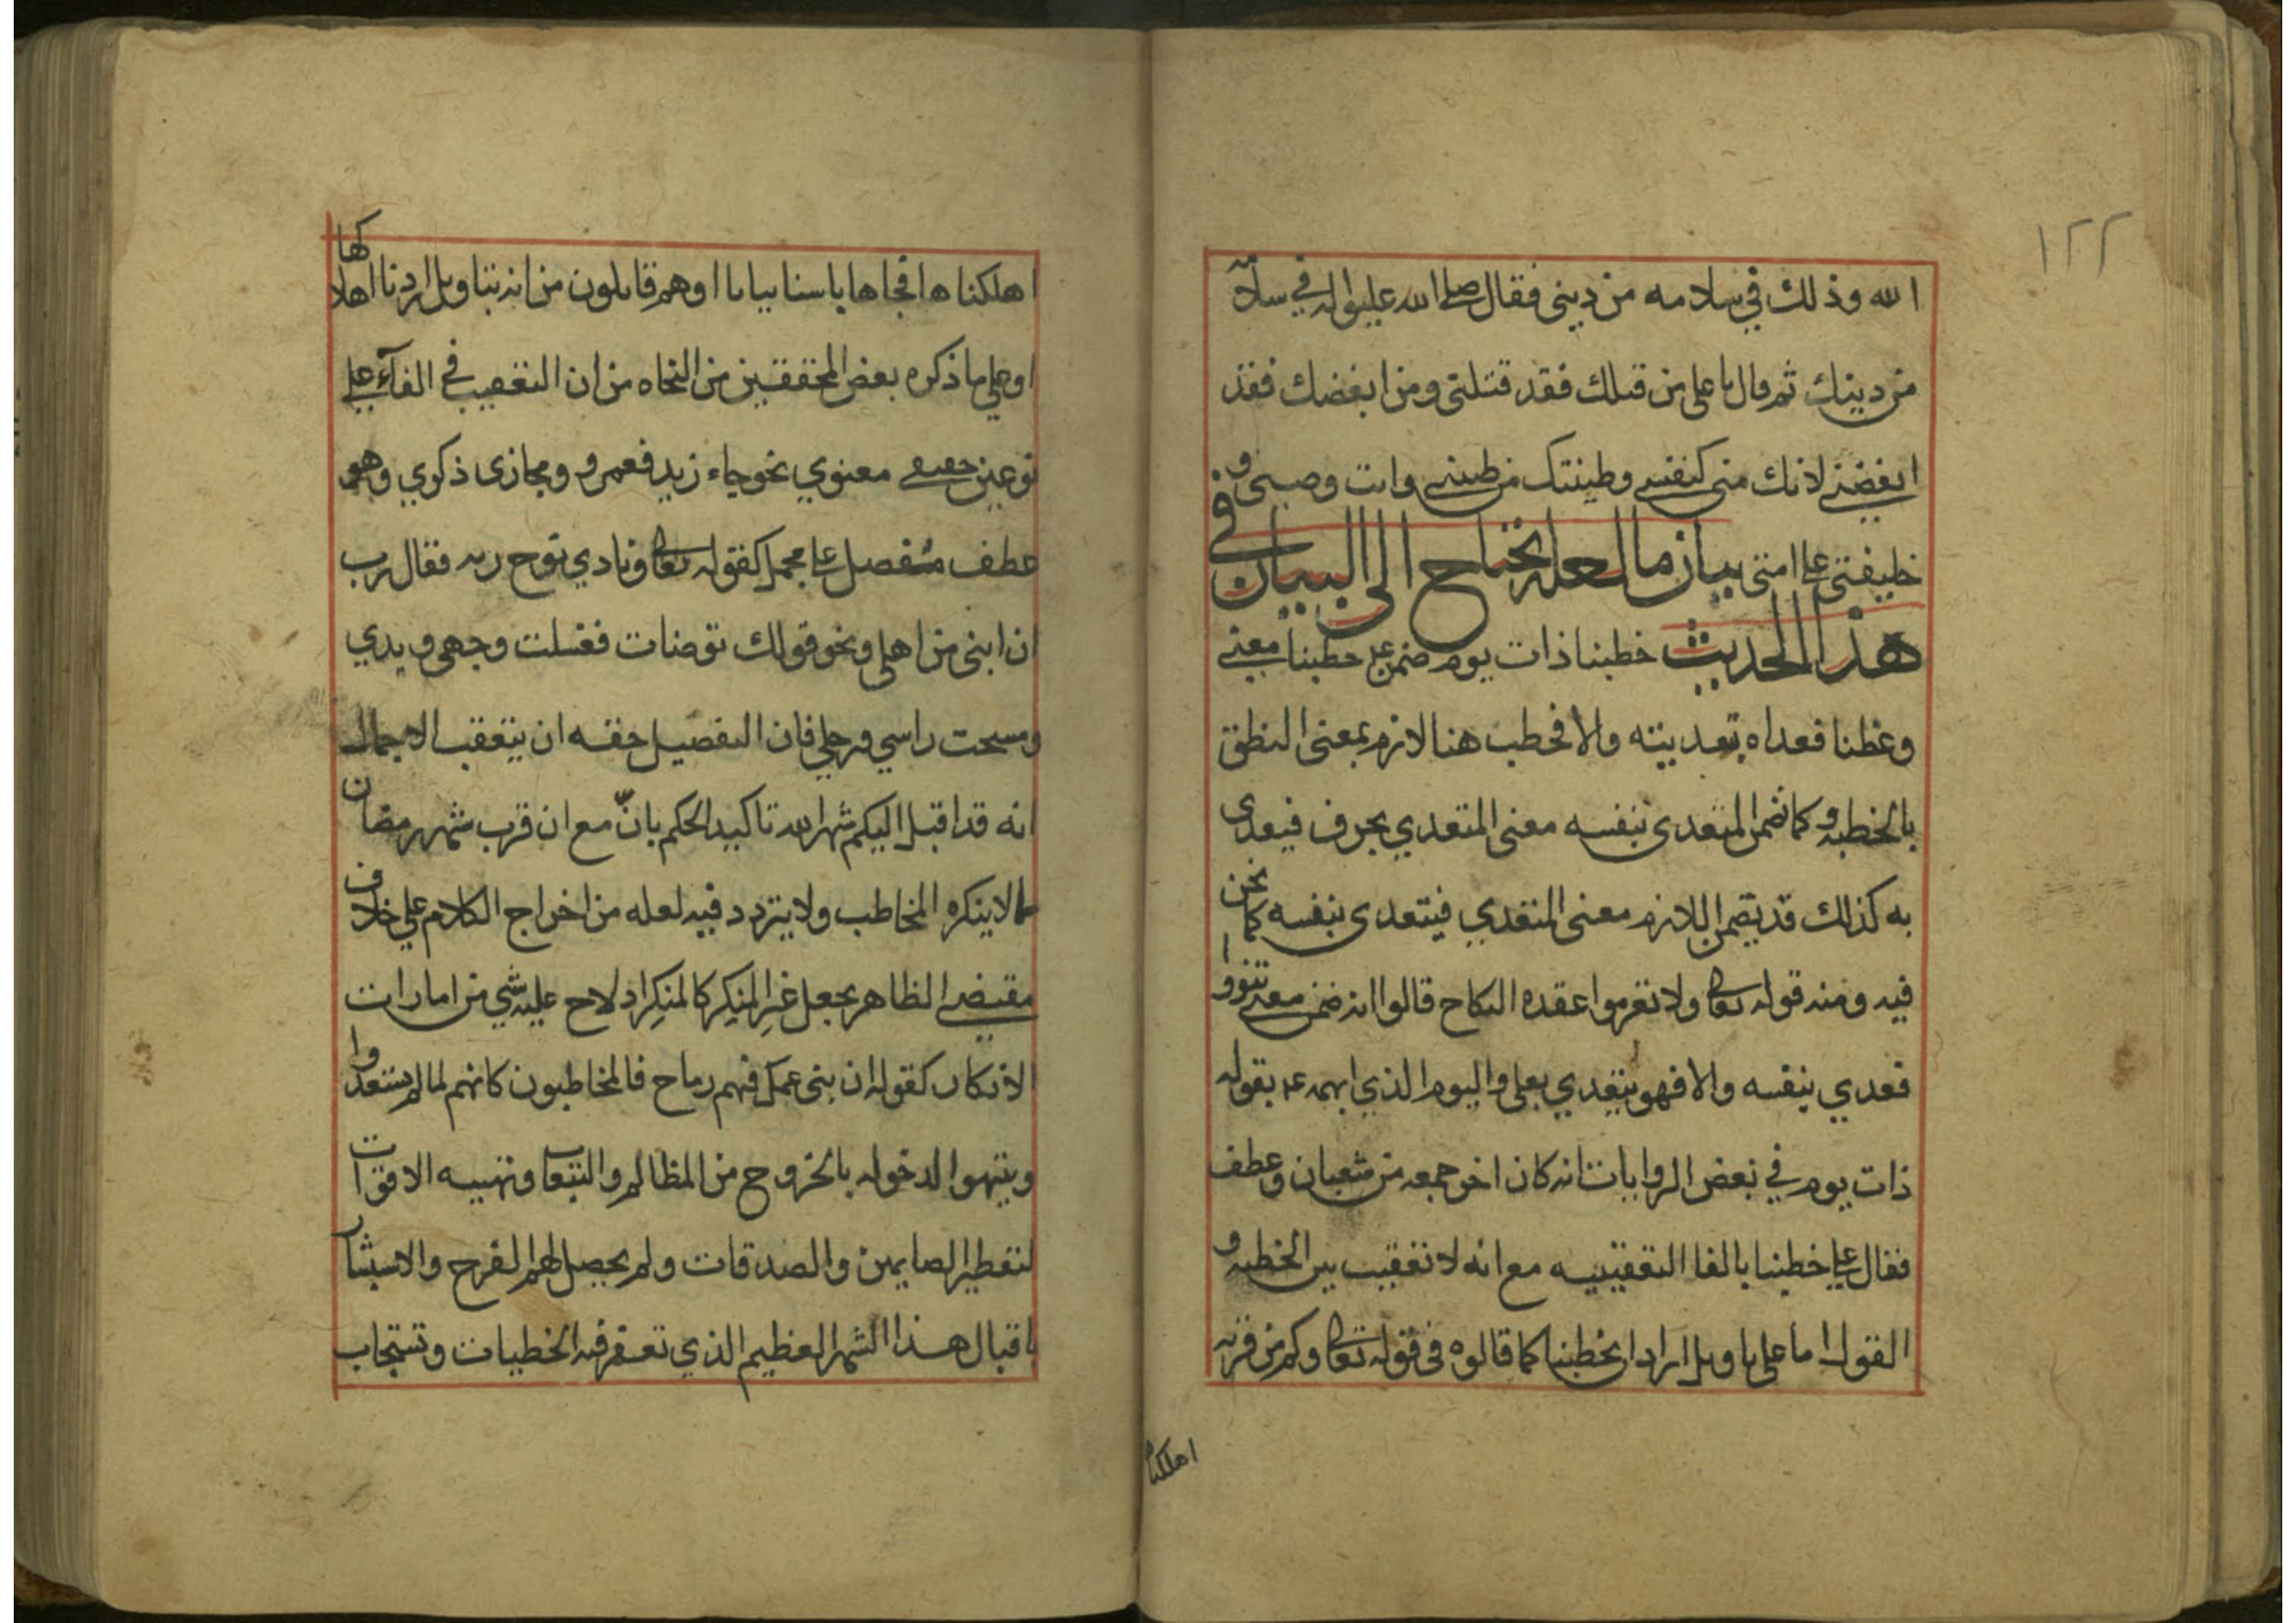 ١٢٢
الله وذلك في سلامه من ديني فقال صلى الله عليه واله في سلامة
من دينك ثم قال يا على من قتلك فقد قتلتى ومن ابغضك فقد
ابغضني لانك منى كنفسي وطينتك من طينتي وانت وصيى و
خليفتى على امتى بيان ما لعله يحتاج الى البيان في
هذا الحديث خطبنا ذات يوم ضمن خطبنا معنى
وعظنا فعداه تعديته والا فخطب هنا لازم بمعنى النطق
بالخطبه وكما تضمن المتعدى بنفسه معنى المتعدي بحرف فيعدى
به كذلك قد يتضمن اللازم معنى المتعدي فيتعدى بنفسه كما نحن
فيه ومنه قوله تعا ولا تعزموا عقده النكاح قالوا انه ضمن معنى تنووا
فعدي بنفسه والا فهو يتعدي بعلى واليوم الذي ابهمه ع بقوله
ذات يوم في بعض الروايات انه كان اخر جمعه من شعبان وعطف
فقال على خطبنا بالفا التعقيبيه مع انه لا تعقيب بين الخطبه و
القول اما على تاويل اراد ان يخطبنا كما قالوه فى قوله تعا وكم من قريه
اهلكنا
اهلكناها فجاءها باسنا بياتا اوهم قايلون من انه بتاويل اردنا اهلاكها
او على ما ذكره بعض المحققين من النحاه من ان التعقيب في الفآء على
نوعين حقيقي معنوي نحو جاء زيد فعمرو ومجازى ذكري وهو
عطف مفصل على مجمل كقوله تعا ونادي نوح ربه فقال رب
ان ابنى من اهلى ونحو قولك توضات فغسلت وجهى ويدي
ومسحت راسي ورجلي فان التفصيل حقه ان يتعقب الاجمال
انه قد اقبل اليكم شهر الله تاكيد الحكم بانّ مع ان قرب شهر رمضان
مما لا ينكره المخاطب ولا يتردد فيه لعله من اخراج الكلام على خلاف
مقتضى الظاهر بجعل غير المنكر كالمنكر اذ لاح عليه شي من امارات
الانكار كقوله ان بنى عمك فيهم رماح فالمخاطبون كانهم لما لم يستعدوا
ويتهيوا لدخوله بالخروج من المظالم والتبعات وتهييه الاقوات
لتفطير الصايمين والصدقات ولم يحصل لهم الفرح والاستبشار
باقبال هذا الشهر العظيم الذي تغفر فيه الخطيات وتستجاب